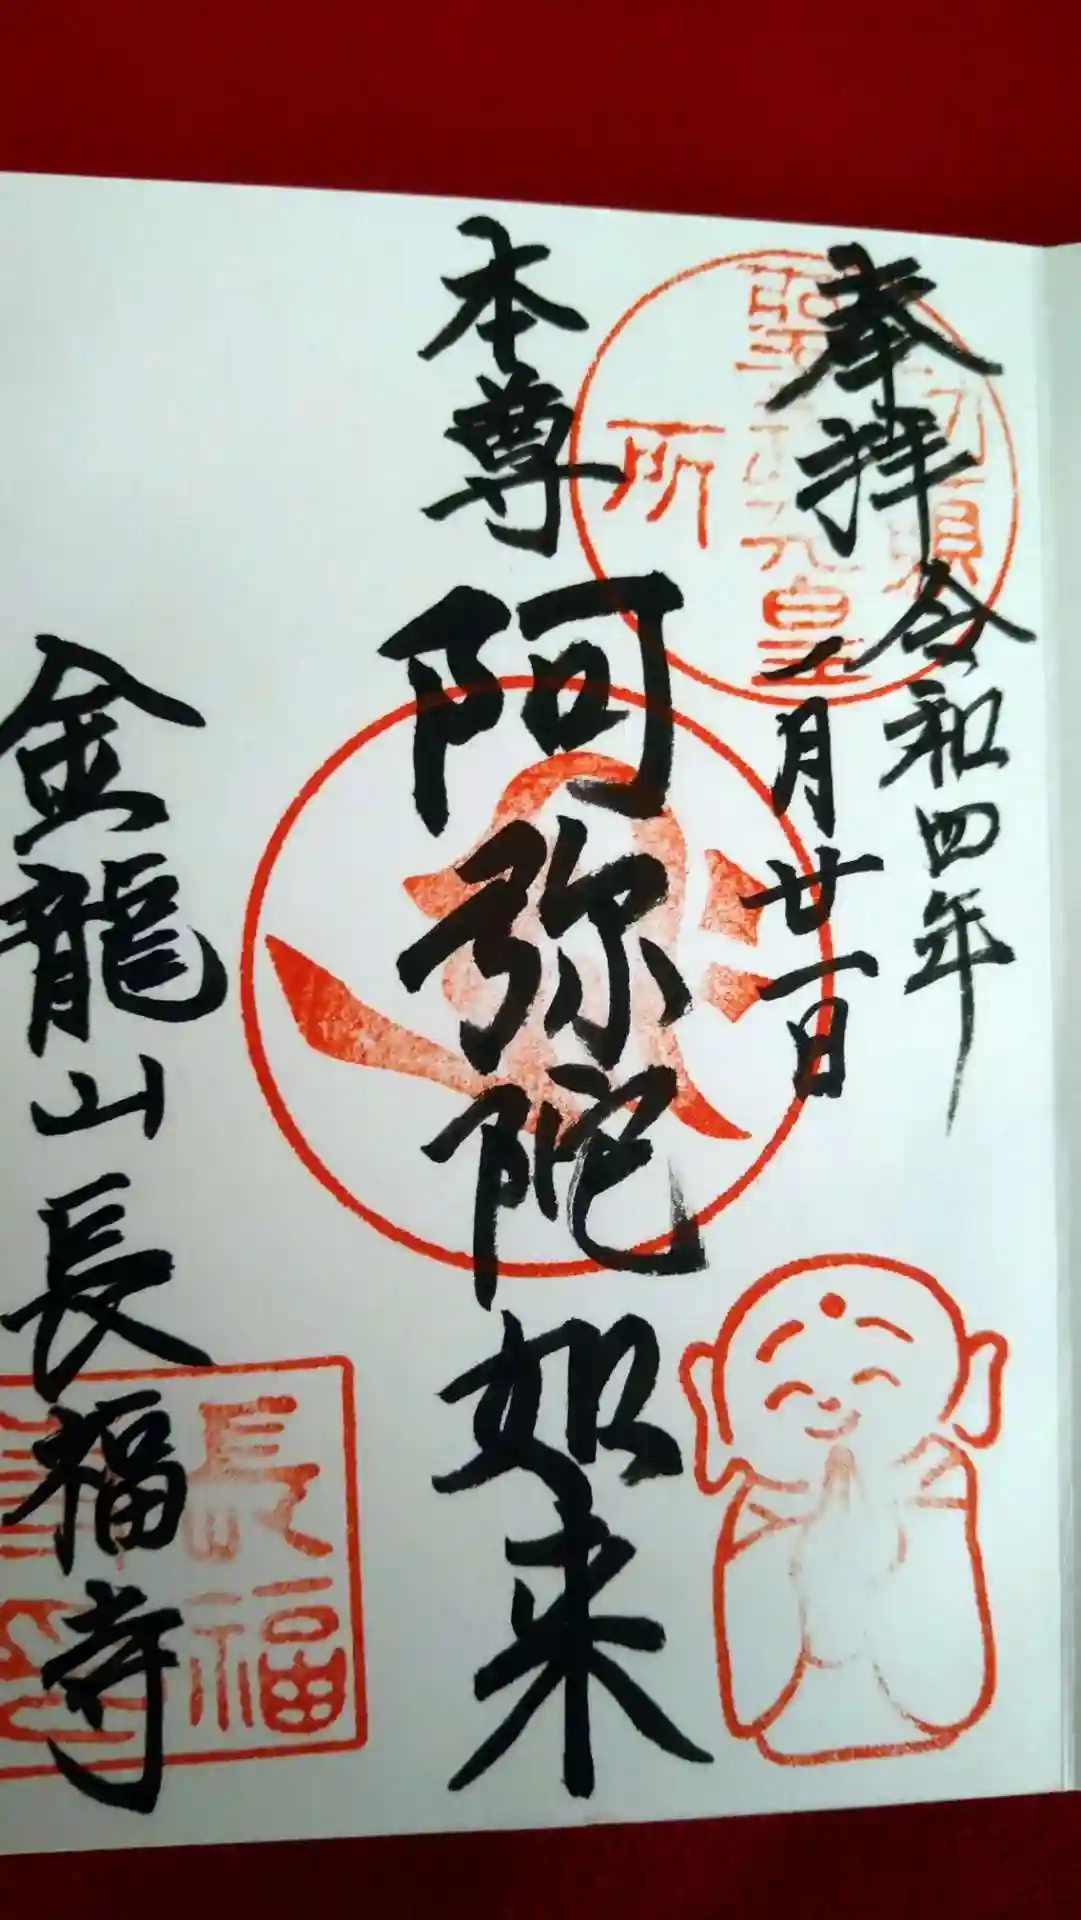 奉拝
令和四年
一月廿一日
本尊
阿弥陀如来
金龍山
長福寺
所
長福